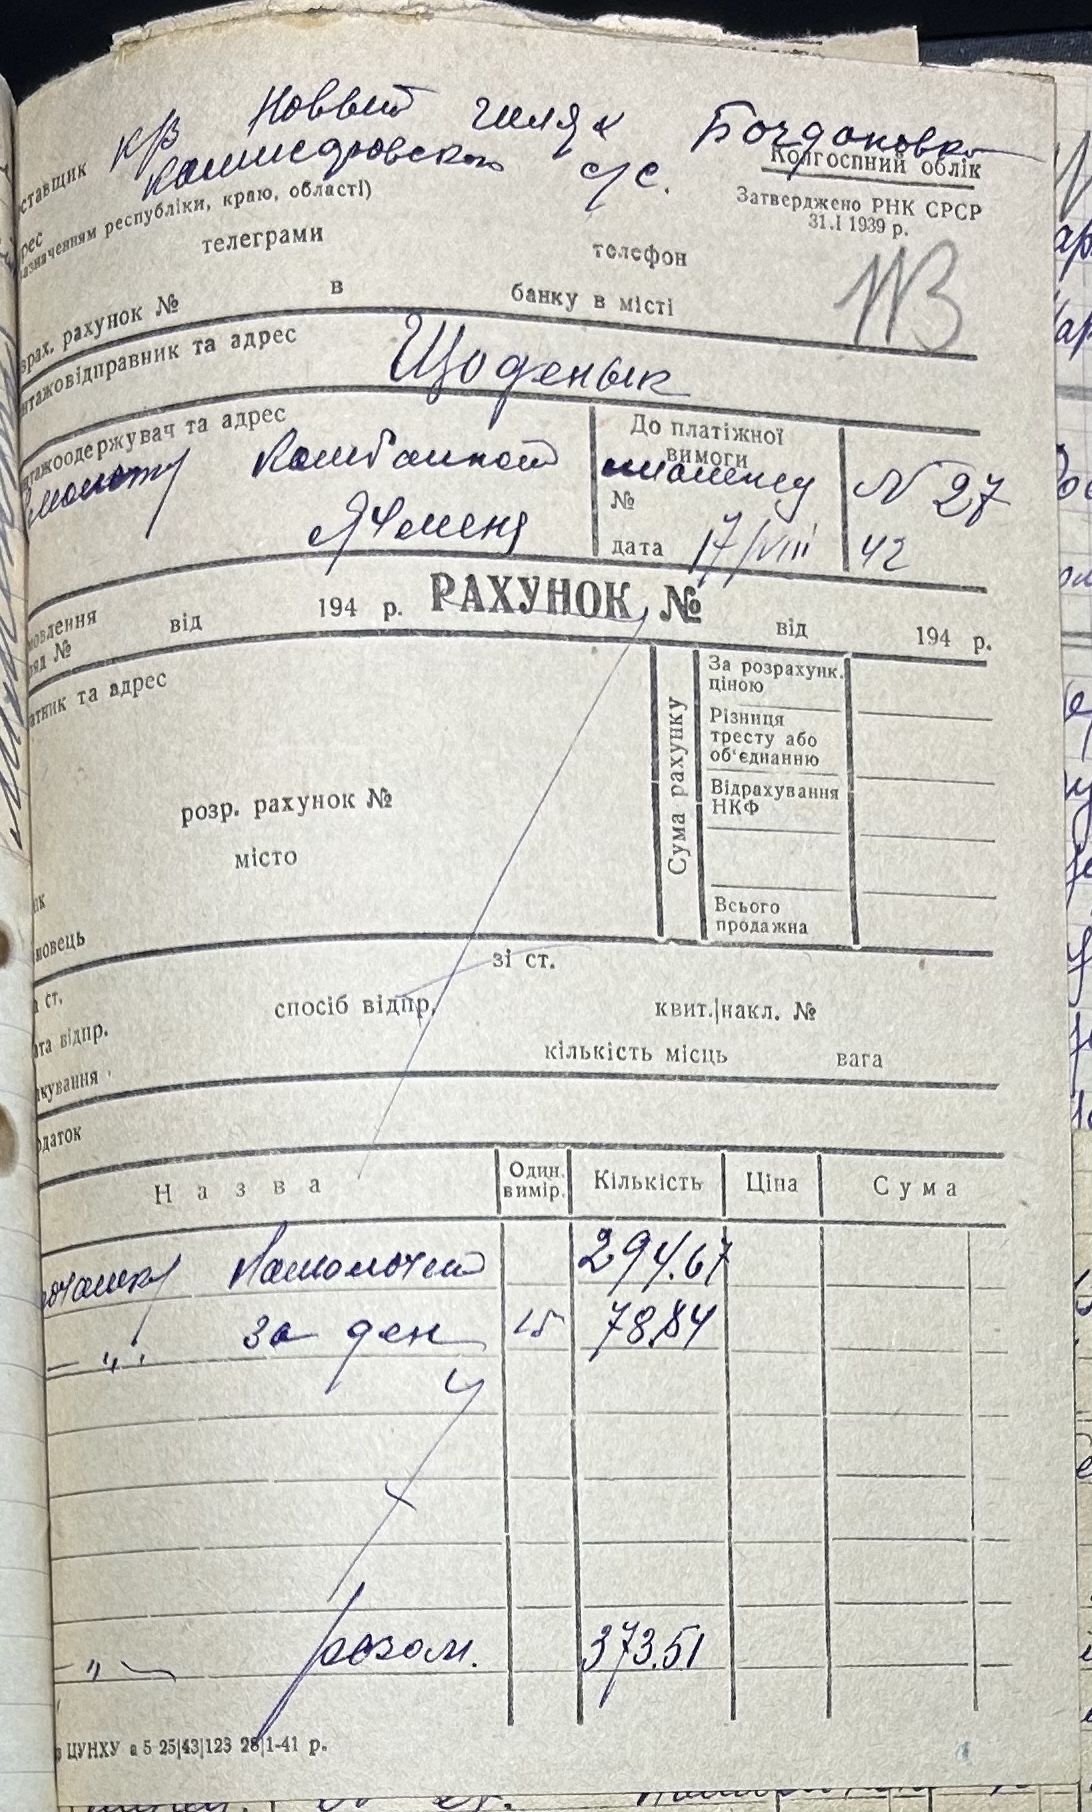 Новый шлях Богдановка
Колгоспний облік
ставщик к/з Комиссаровского с/с.
рес
азначенням республіки, краю, області)
Затверджено РНК СРСР
31.I 1939 р.
телеграми телефон
№3
зрах. рахунок № в банку в місті
нтажовідправник та адрес
Щоденык
нтажоодержувач та адрес
До платіжної
вимоги
Комбайном № 27
Ячменя
№
дата 17/VIII 42
мовлення
ряд № від 194 р. РАХУНОК № від 194 р.
атник та адрес
За розрахунк.
ціною
Різниця
тресту або
об'єднанню
Сума рахунку
розр. рахунок №
Відрахування
НКФ
місто
нк
Всього
продажна
мовець
зі ст.
а ст.
спосіб відпр. квит./накл. №
ата відпр.
кількість місць вага
кування
одаток
Назва Один. вимір. Кількість Ціна Сума
Намолочен 294.67
— " . за ден 15 78.84
— " — разом. 373.51
р ЦУНХУ а 5 25|43|123 28|1-41 р.